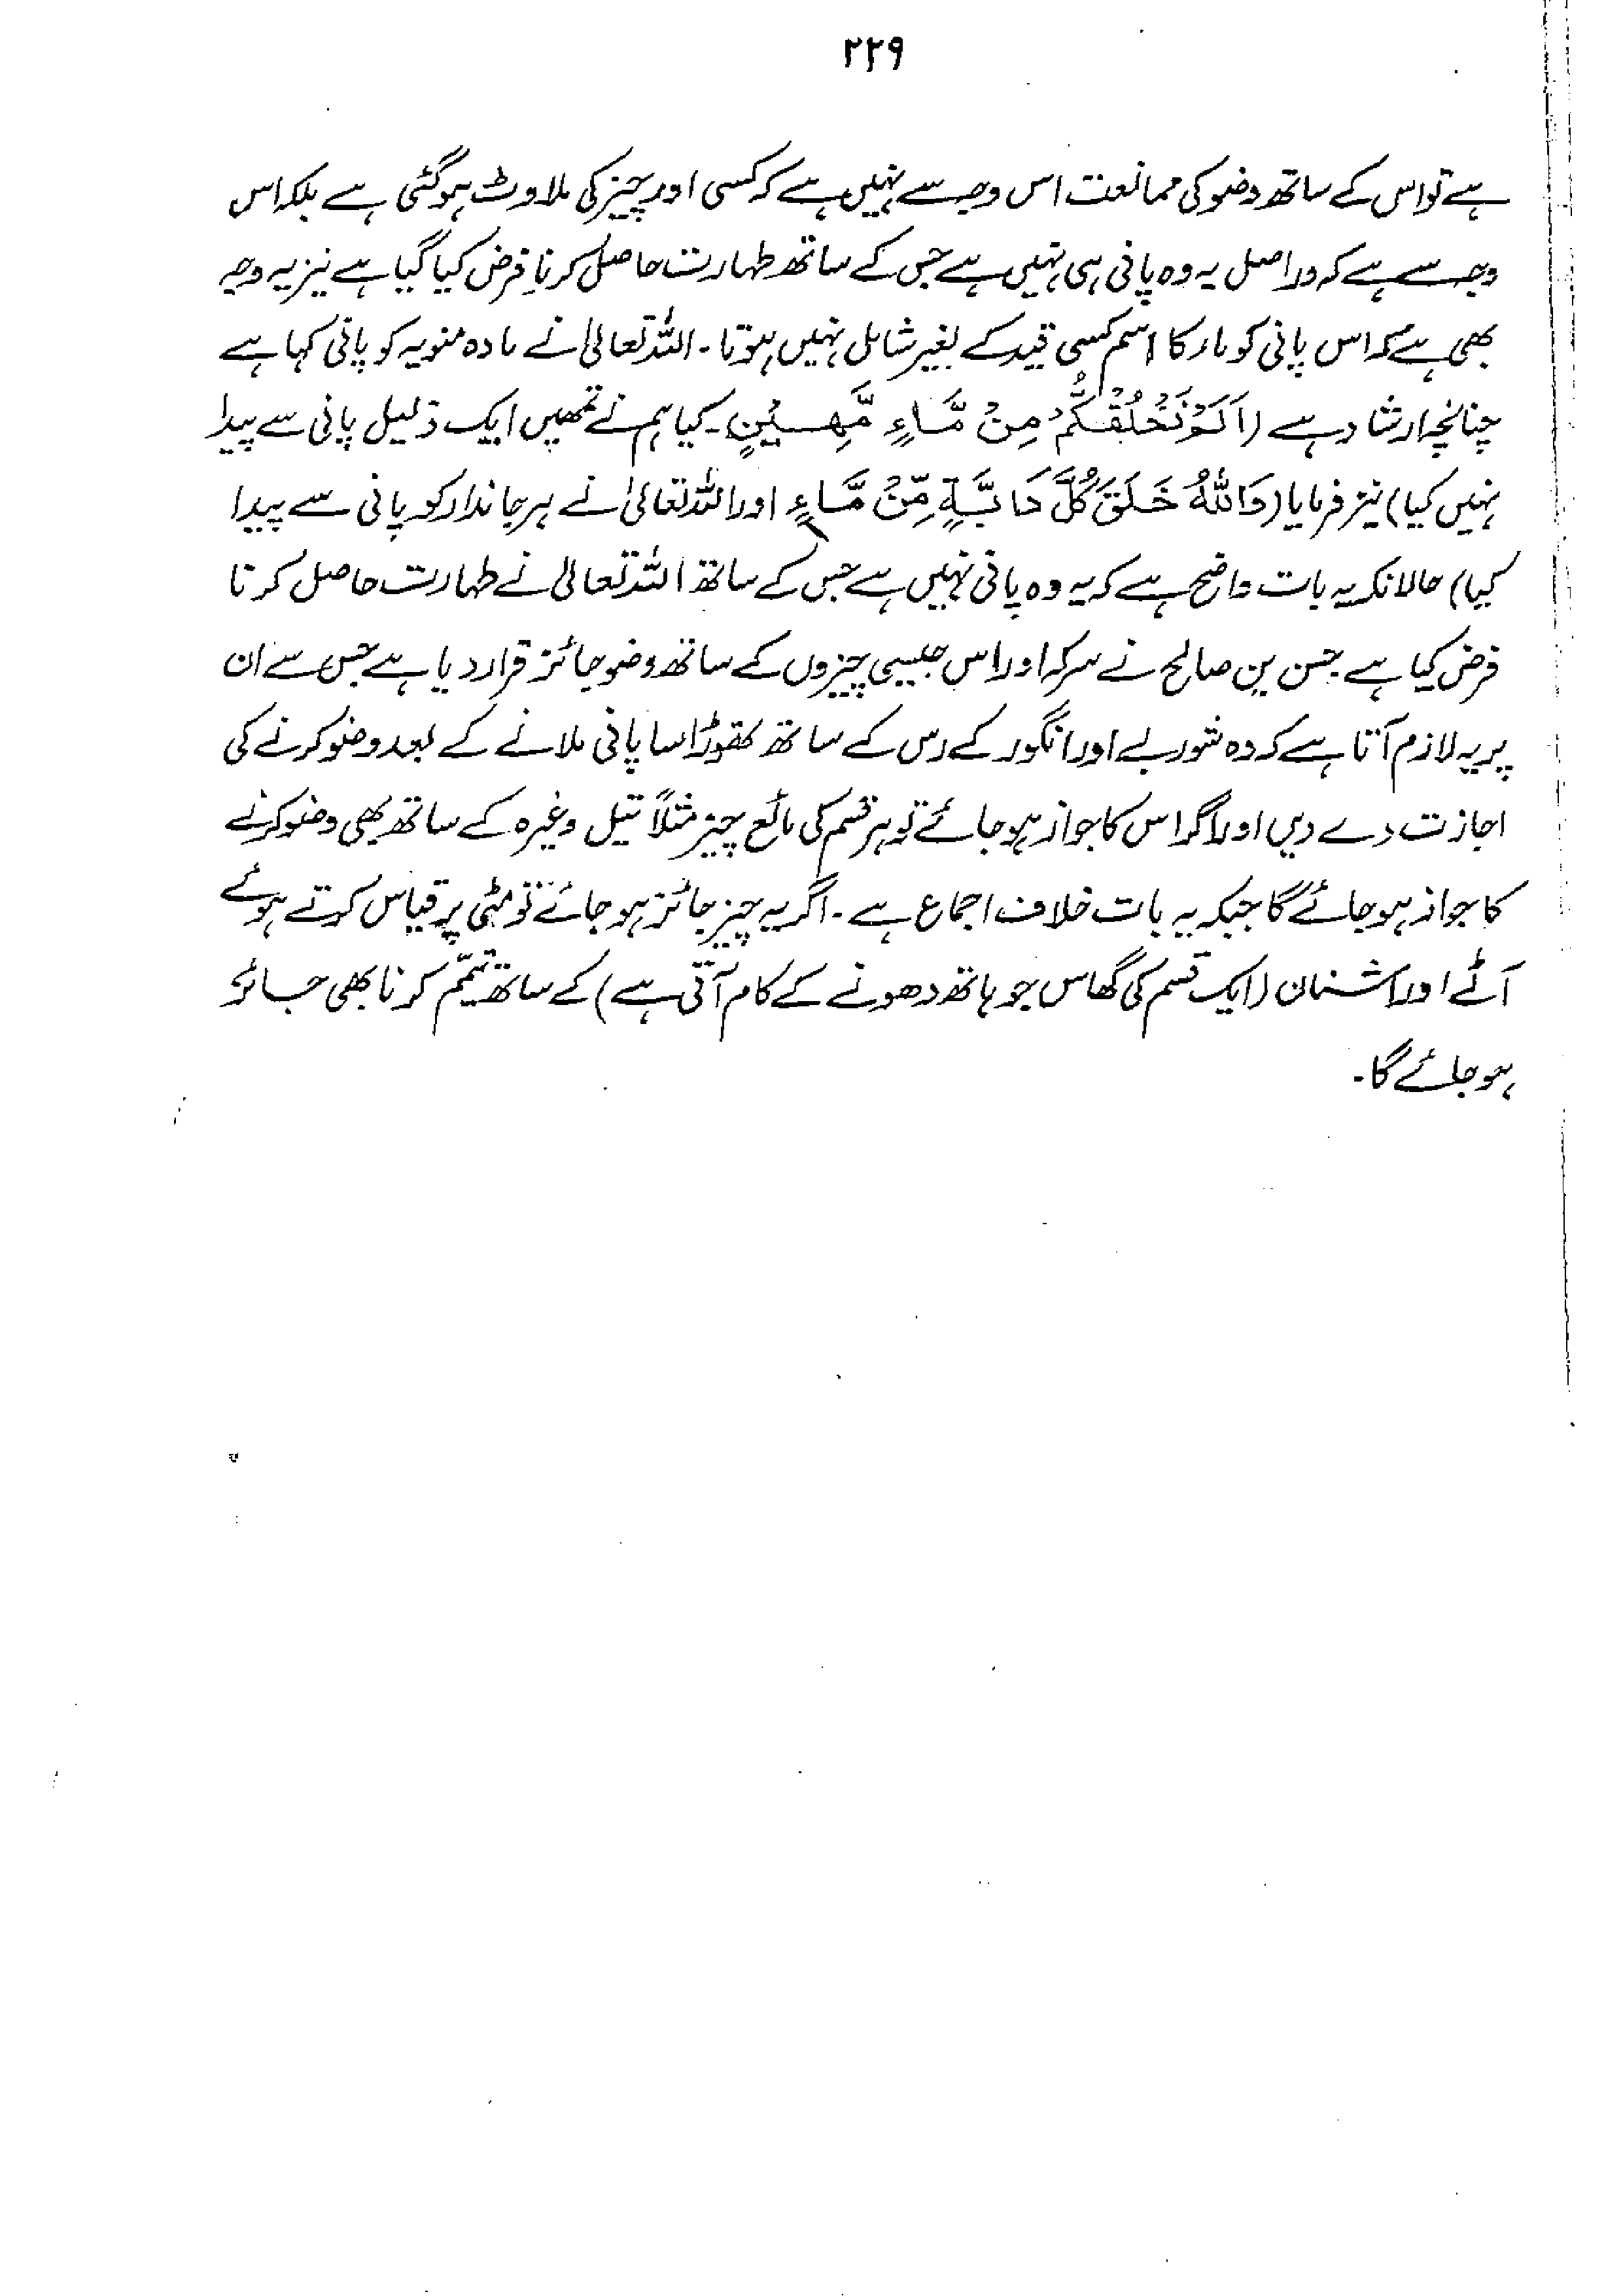 ۲۲۹
ہے تو اس کے ساتھ وضو کی ممانعت اس وجہ سے نہیں ہے کہ کسی اور چیز کی ملاوٹ ہوگئی ہے بلکہ اس
وجہ سے ہے کہ دراصل یہ وہ پانی ہی نہیں ہے جس کے ساتھ طہارت حاصل کرنا فرض کیا گیا ہے نیز یہ وجہ
بھی ہے کہ اس پانی کو مار کا اسم کسی قید کے بغیر شامل نہیں ہوتا۔ اللہ تعالیٰ نے مادہ منویہ کو پانی کہا ہے
چنانچہ ارشاد ہے (اَلَمْ نَخْلُقْكُّمْ مِنْ مَّاءٍ مَّهِيْنٍ۔ کیا ہم نے تمھیں ایک ذلیل پانی سے پیدا
نہیں کیا) نیز فرمایا (وَاللهُ خَلَقَ كُلَّ دَابَّةٍ مِّنْ مَّاءٍ اور اللہ تعالیٰ نے ہر جاندار کو پانی سے پیدا
کیا) حالانکہ یہ بات واضح ہے کہ یہ وہ پانی نہیں ہے جس کے ساتھ اللہ تعالیٰ نے طہارت حاصل کرنا
فرض کیا ہے حسن بن صالح نے سرکہ اور اس جیسی چیزوں کے ساتھ وضو جائز قرار دیا ہے جس سے ان
پر یہ لازم آتا ہے کہ وہ شوربے اور انگور کے رس کے ساتھ تھوڑا سا پانی ملانے کے بعد وضو کرنے کی
اجازت دے دیں اور اگر اس کا جواز ہو جائے تو ہر قسم کی مائع چیز مثلاً تیل وغیرہ کے ساتھ بھی وضو کرنے
کا جواز ہو جائے گا جبکہ یہ بات خلاف اجماع ہے۔ اگر یہ چیز جائز ہو جائے تو مٹی پر قیاس کرتے ہوئے
آٹے اور اشنان (ایک قسم کی گھاس جو ہاتھ دھونے کے کام آتی ہے) کے ساتھ تیمّم کرنا بھی جائز
ہو جائے گا۔